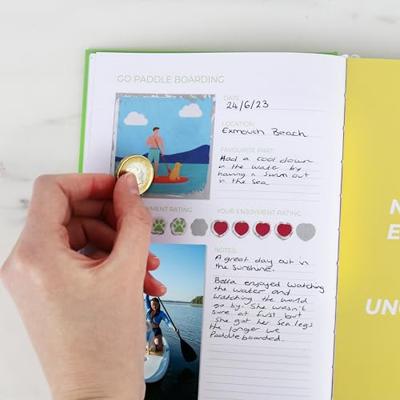 GO PADDLE BOARDING
DATE:
24/6/23
LOCATION:
Exmouth Beach
FAVOURITE PART:
Had a cool down
in the water by
having a swim out in
the sea
YMENT RATING
YOUR ENJOYMENT RATING
NOTES:
A great day out in
the sunshine.
Bella enjoyed watching
the water and
watching the world
go by. She wasn't
sure at first but
she got her sea legs
the longer we
Paddleboarded.
N
E
UN